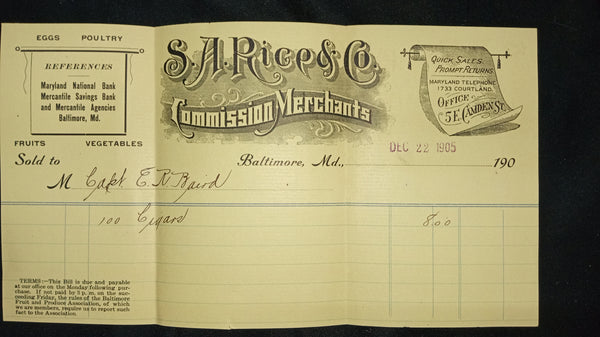 EGGS POULTRY
REFERENCES
Maryland National Bank
Mercantile Savings Bank
and Mercantile Agencies
Baltimore, Md.
FRUITS VEGETABLES
S. A. Rice & Co.
Commission Merchants
QUICK SALES.
PROMPT RETURNS.
MARYLAND TELEPHONE
1733 COURTLAND.
OFFICE
5 E. CAMDEN ST.
Sold to
Baltimore, Md., DEC 22 1905 190
M Capt. E. R. Baird
100 Cigars 8 00
TERMS:—This Bill is due and payable
at our office on the Monday following pur-
chase. If not paid by 3 p. m. on the suc-
ceeding Friday, the rules of the Baltimore
Fruit and Produce Association, of which
we are members, require us to report such
fact to the Association.